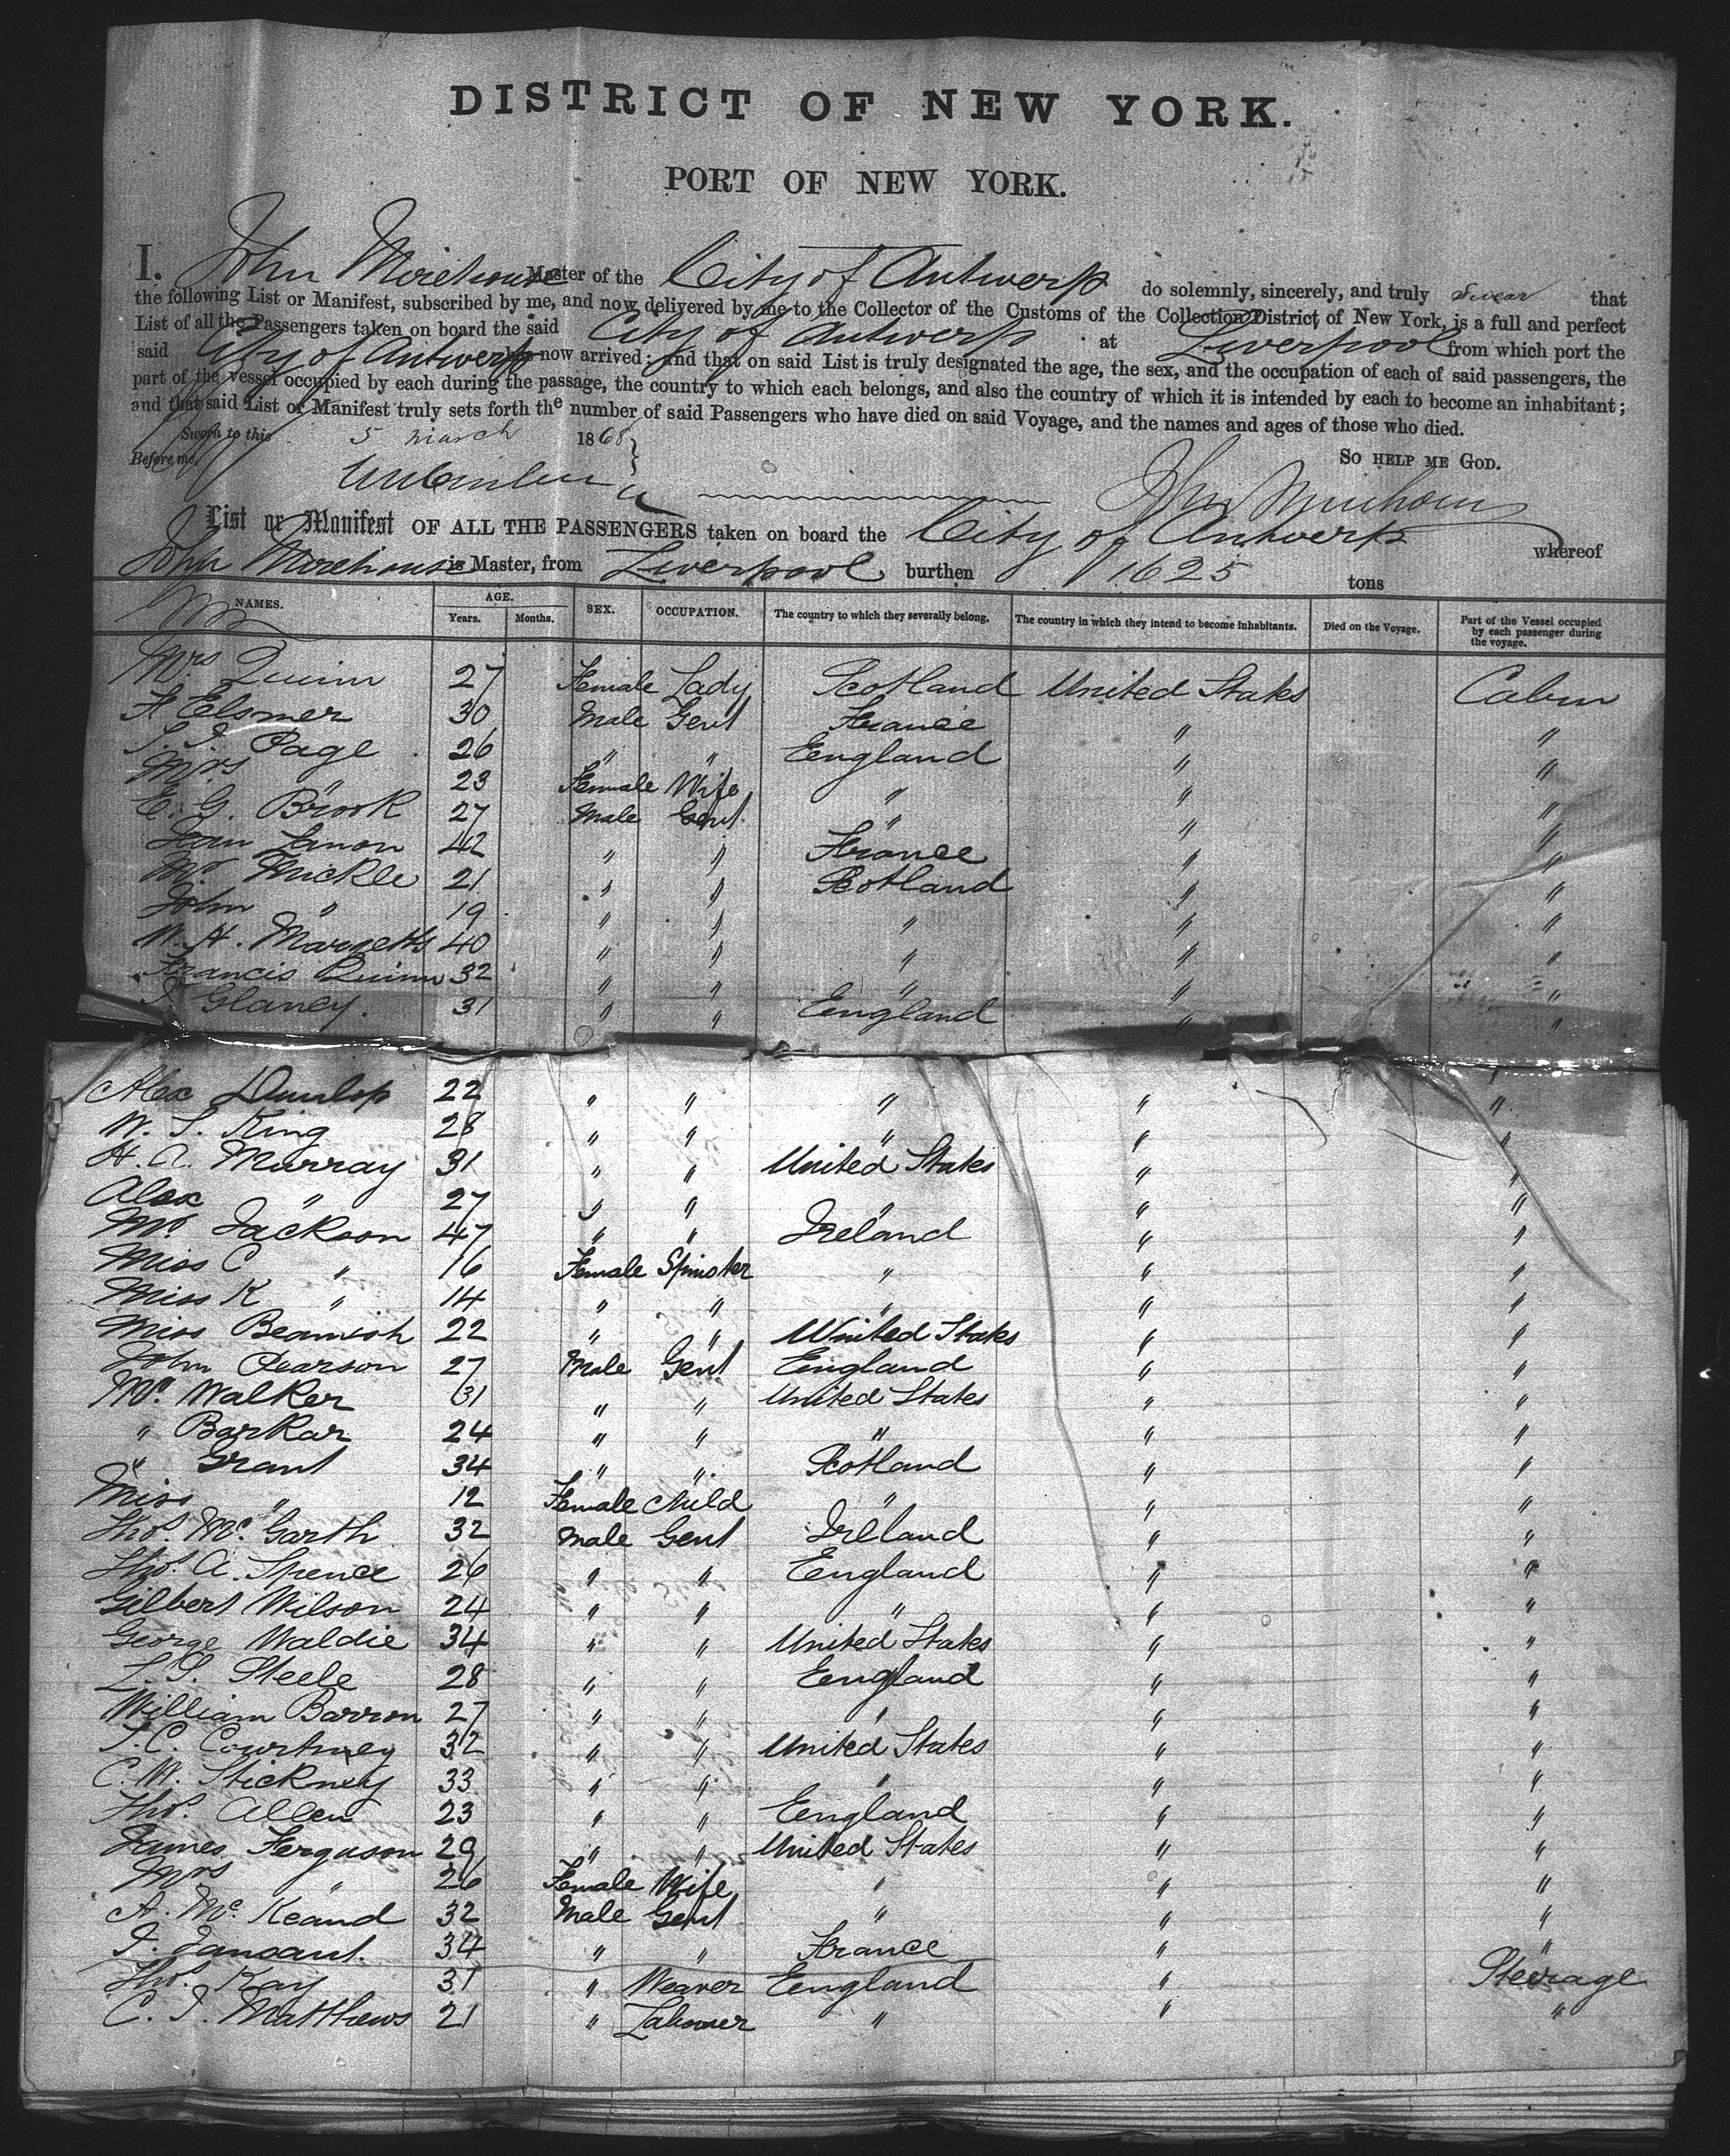 DISTRICT OF NEW YORK.
PORT OF NEW YORK.
I. John Mirehouse Master of the City of Antwerp do solemnly, sincerely, and truly swear that
the following List or Manifest, subscribed by me, and now delivered by me to the Collector of the Customs of the Collection District of New York, is a full and perfect
List of all the Passengers taken on board the said City of Antwerp at Liverpool from which port the
said City of Antwerp has now arrived; and that on said List is truly designated the age, the sex, and the occupation of each of said passengers, the
part of the vessel occupied by each during the passage, the country to which each belongs, and also the country of which it is intended by each to become an inhabitant;
and that said List or Manifest truly sets forth the number of said Passengers who have died on said Voyage, and the names and ages of those who died.
Sworn to this 5 March 1868
Before me, SO HELP ME GOD.
List or Manifest OF ALL THE PASSENGERS taken on board the City of Antwerp whereof
John Mirehouse is Master, from Liverpool burthen 1625 tons
NAMES. AGE. Years. Months. SEX. OCCUPATION. The country to which they severally belong. The country in which they intend to become inhabitants. Died on the Voyage. Part of the Vessel occupied by each passenger during the voyage.
Mrs Quinn 27 Female Lady Scotland United States Cabin
A Elsmer 30 Male Gent France " "
Page 26 " " England " "
Mrs " 23 Female Wife " " "
E. G. Brook 27 Male Gent " " "
Jean Lanon 42 " " France " "
Mr Mickle 21 " " Scotland " "
John " 19 " " " " "
W. H. Margetts 40 " " " " "
Francis Quinn 32 " " " " "
Glaney. 31 " " England " "
Alex Dunlop 22 " " " " "
W. S. King 28 " " " " "
H. A. Murray 31 " " United States " "
Alex " 27 " " " " "
Mr. Jackson 47 " " Ireland " "
Miss C " 16 Female Spinster " " "
Miss K " 14 " " " " "
Miss Beamish 22 " " United States " "
John Pearson 27 Male Gent England " "
Mr. Walker 31 " " United States " "
" Barkar 24 " " " " "
" Grant 34 " " Scotland " "
Miss " 12 Female Child " " "
Thos. Mc. Garth 32 Male Gent Ireland " "
Thos. A. Spence 26 " " England " "
Gilbert Wilson 24 " " " " "
George Waldie 34 " " United States " "
L. S. Steele 28 " " England " "
William Barron 27 " " " " "
T. C. Courtney 32 " " United States " "
C. W. Stickney 33 " " " " "
Thos. Allen 23 " " England " "
James Ferguson 29 " " United States " "
Mrs " 26 Female Wife " " "
A. Mc. Keand 32 Male Gent " " "
Jansant. 34 " " France " "
Thos. Kay 31 " Weaver England " Steerage
C. J. Matthews 21 " Labourer " " "